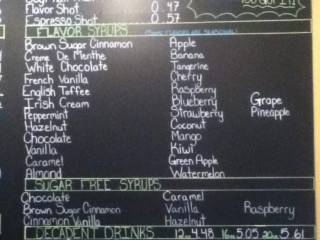 Flavor Shot 0.47
Espresso Shot 0.57
FLAVOR SYRUPS
Brown Sugar Cinnamon Apple
Creme De Menthe Banana
White Chocolate Tangerine
French Vanilla Cherry
English Toffee Raspberry
Irish Cream Blueberry Grape
Peppermint Strawberry Pineapple
Hazelnut Coconut
Chocolate Mango
Vanilla Kiwi
Caramel Green Apple
Almond Watermelon
SUGAR FREE SYRUPS
Chocolate Caramel
Brown Sugar Cinnamon Vanilla Raspberry
Cinnamon Vanilla Hazelnut
DECADENT DRINKS 12oz 4.48 16oz 5.05 20oz 5.61